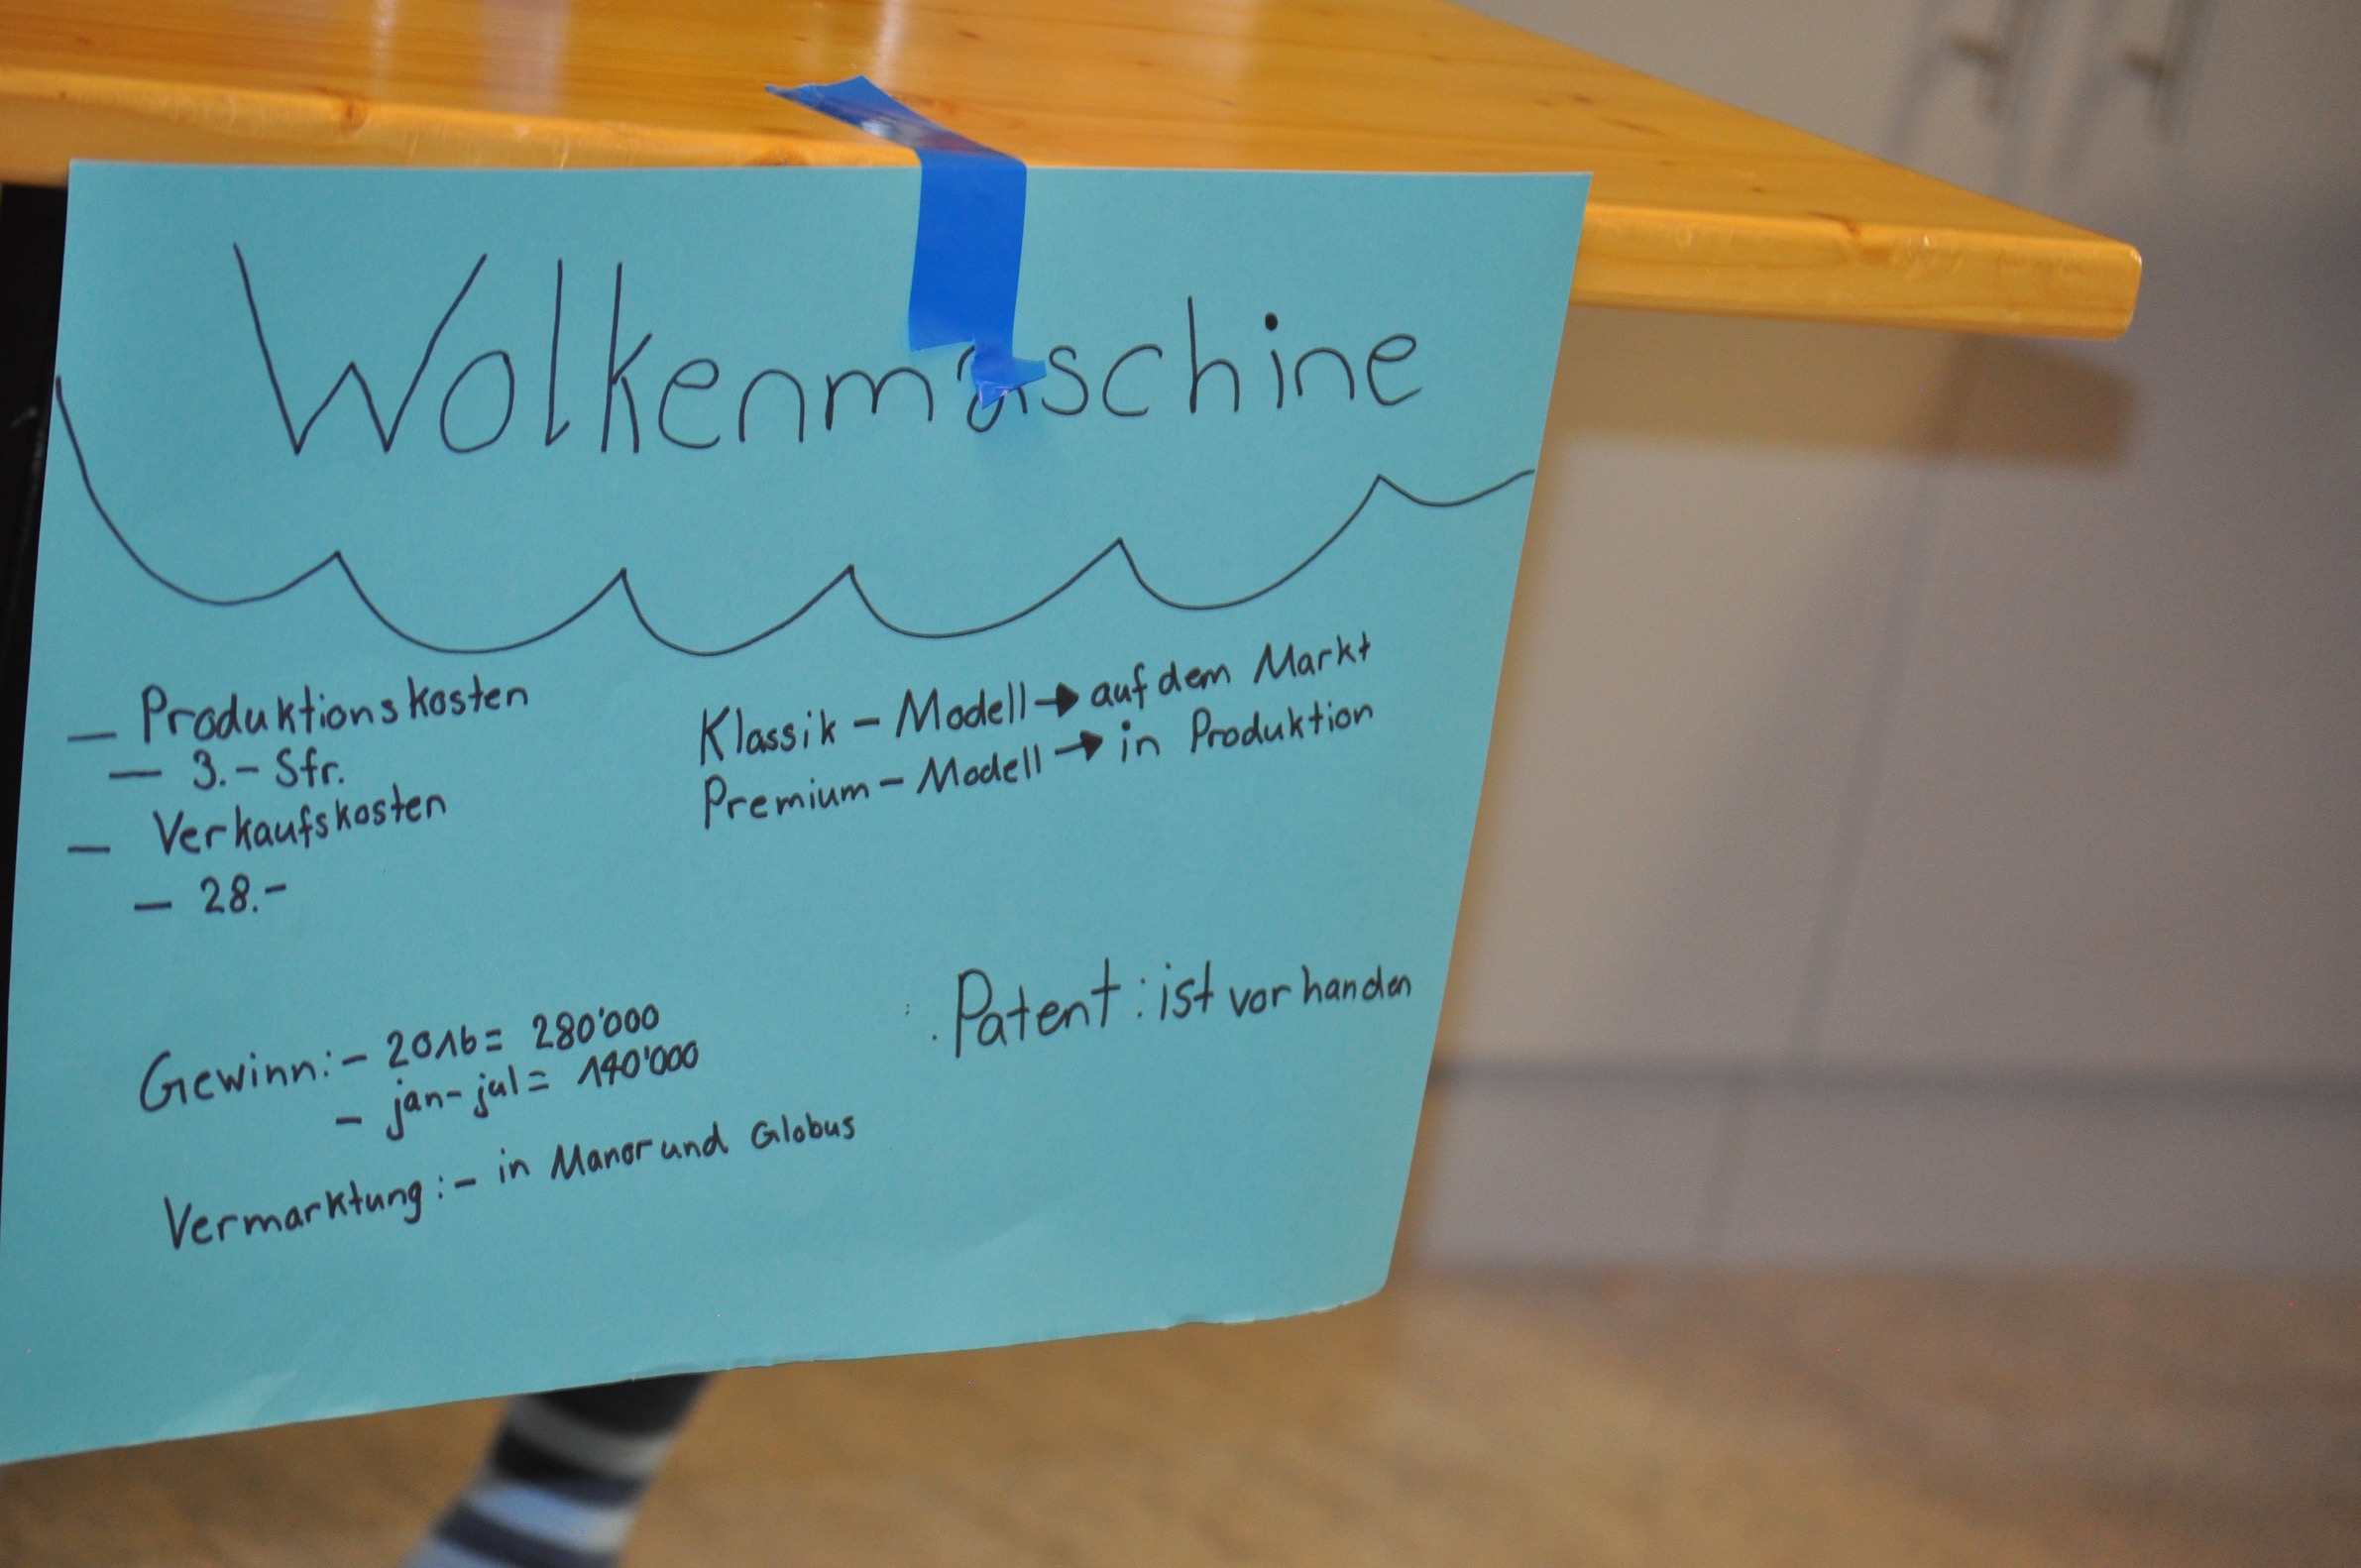 Wolkenmaschine
— Produktionskosten
— 3.– Sfr.
— Verkaufskosten
— 28.–
Klassik – Modell → auf dem Markt
Premium – Modell → in Produktion
Patent : ist vorhanden
Gewinn: – 2016 = 280'000
– jan – jul = 140'000
Vermarktung : – in Manor und Globus